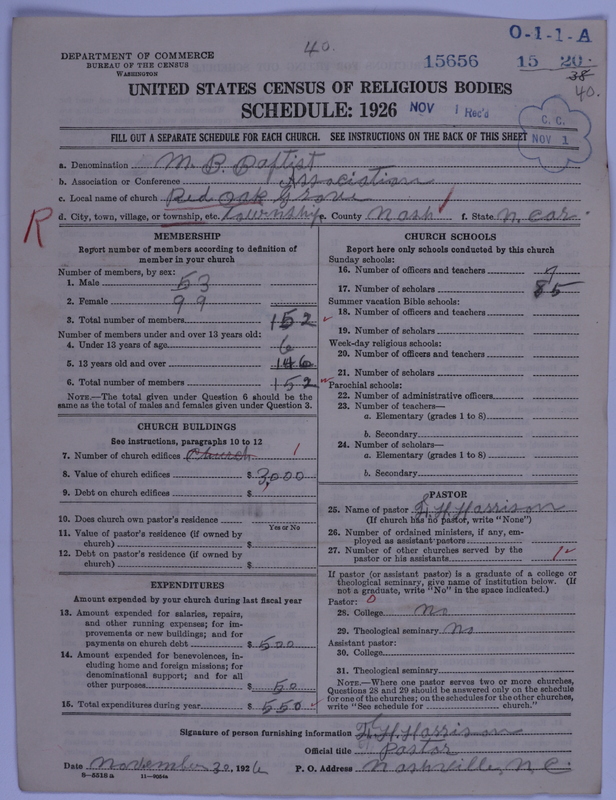 40.
O-1-1-A
DEPARTMENT OF COMMERCE
BUREAU OF THE CENSUS
WASHINGTON
15656 15 20.
38
40.
UNITED STATES CENSUS OF RELIGIOUS BODIES
SCHEDULE: 1926 NOV 1 Rec'd
C. C.
NOV 1
FILL OUT A SEPARATE SCHEDULE FOR EACH CHURCH. SEE INSTRUCTIONS ON THE BACK OF THIS SHEET
a. Denomination M. B. Baptist
b. Association or Conference Association
c. Local name of church Red Oak Grove
R
d. City, town, village, or township, etc. Township e. County Nash f. State N. Car.
MEMBERSHIP
Report number of members according to definition of
member in your church
Number of members, by sex:
1. Male 53
2. Female 99
3. Total number of members 152
Number of members under and over 13 years old:
4. Under 13 years of age 6
5. 13 years old and over 146
6. Total number of members 152
NOTE.—The total given under Question 6 should be
same as the total of males and females given under Question 3.
CHURCH BUILDINGS
See instructions, paragraphs 10 to 12
7. Number of church edifices Church 1
8. Value of church edifices $ 3,000
9. Debt on church edifices $
10. Does church own pastor's residence
Yes or No
11. Value of pastor's residence (if owned by
church) $
12. Debt on pastor's residence (if owned by
church) $
EXPENDITURES
Amount expended by your church during last fiscal year
13. Amount expended for salaries, repairs,
and other running expenses; for im-
provements or new buildings; and for
payments on church debt $ 500
14. Amount expended for benevolences, in-
cluding home and foreign missions; for
denominational support; and for all
other purposes $ 50
15. Total expenditures during year $ 550
CHURCH SCHOOLS
Report here only schools conducted by this church
Sunday schools:
16. Number of officers and teachers 7
17. Number of scholars 85
Summer vacation Bible schools:
18. Number of officers and teachers
19. Number of scholars
Week-day religious schools:
20. Number of officers and teachers
21. Number of scholars
Parochial schools:
22. Number of administrative officers
23. Number of teachers—
a. Elementary (grades 1 to 8)
b. Secondary
24. Number of scholars—
a. Elementary (grades 1 to 8)
b. Secondary
PASTOR
25. Name of pastor F. H. Harrison
(If church has no pastor, write "None")
26. Number of ordained ministers, if any, em-
ployed as assistant pastors
27. Number of other churches served by the
pastor or his assistants 1
If pastor (or assistant pastor) is a graduate of a college or
theological seminary, give name of institution below. (If
not a graduate, write "No" in the space indicated.)
Pastor: 0
28. College No
29. Theological seminary No
Assistant pastor:
30. College
31. Theological seminary
NOTE.—Where one pastor serves two or more churches,
Questions 28 and 29 should be answered only on the schedule
for one of the churches; on the schedules for the other churches,
write "See schedule for church."
Signature of person furnishing information F. H. Harrison
Official title Pastor
Date November 30, 1926 P. O. Address Nashville, N C
8—5216 a 11—9054a